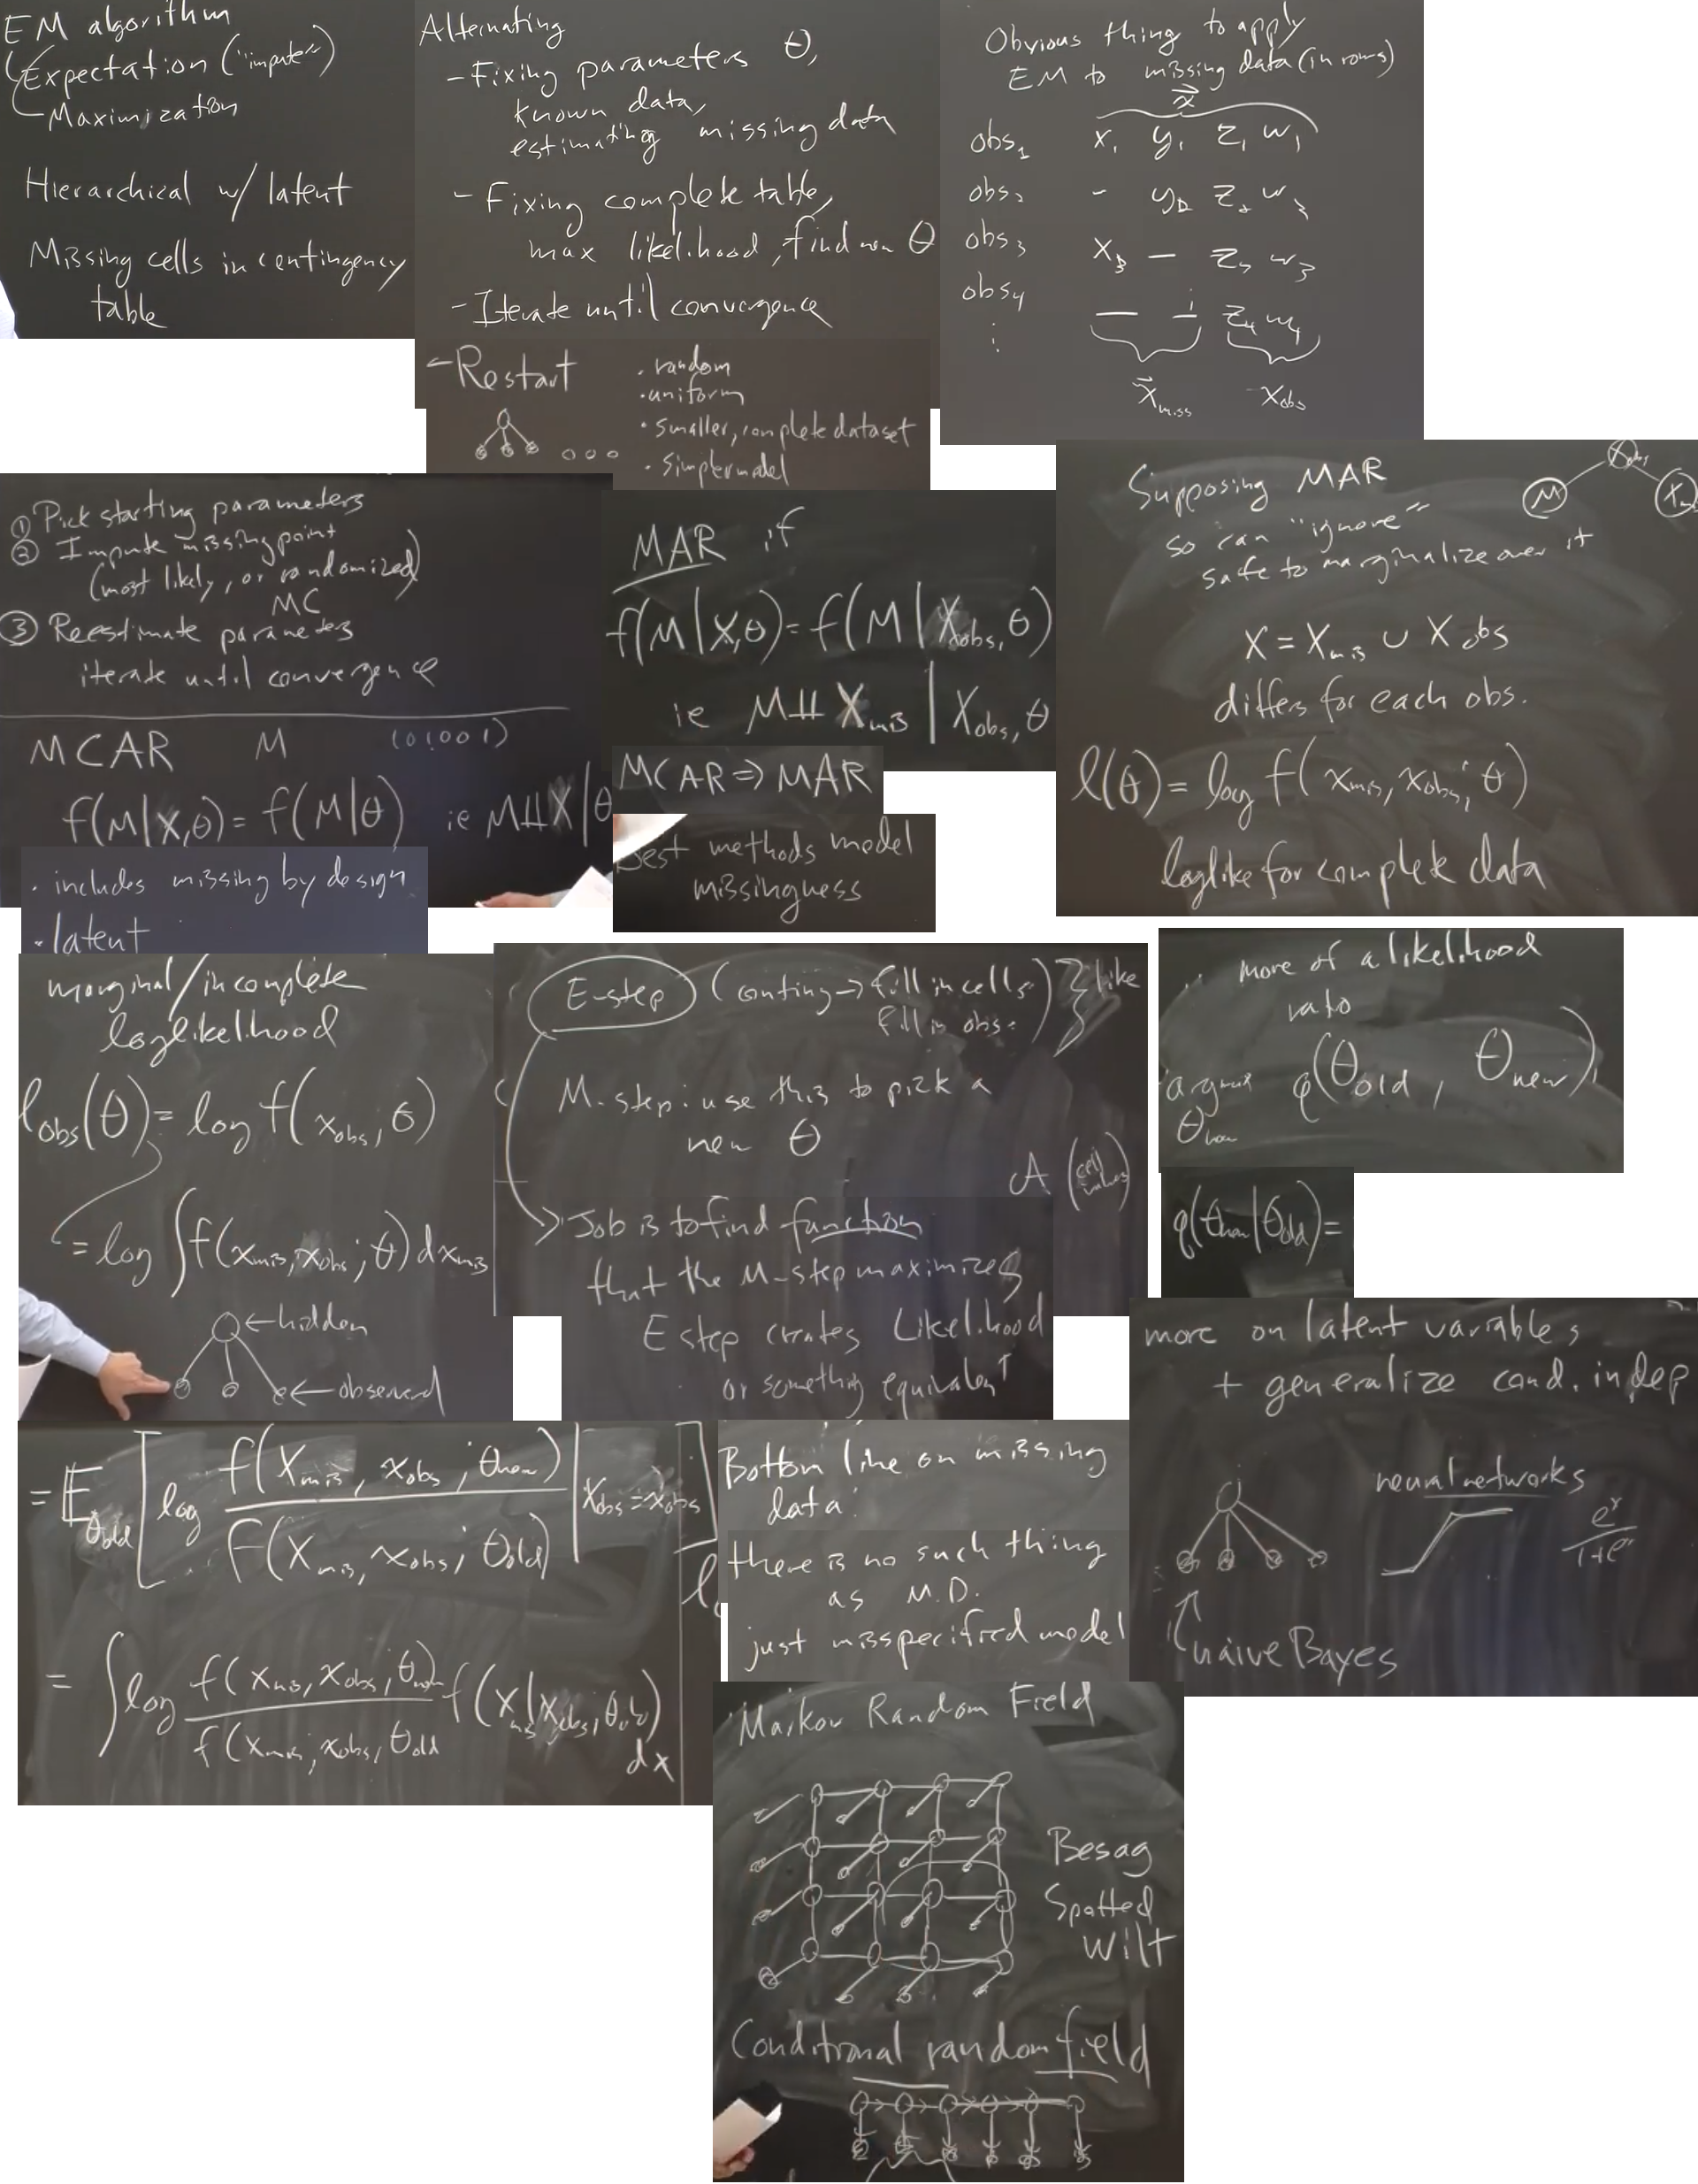 EM algorithm
Expectation ("impute")
Maximization
Hierarchical w/ latent
Missing cells in contingency
table
Alternating
- Fixing parameters θ,
known data,
estimating missing data
- Fixing complete table,
max likelihood, find new θ
- Iterate until convergence
- Restart
· random
· uniform
· smaller, complete dataset
· simpler model
Obvious thing to apply
EM to missing data (in rows)
x⃗
obs₁ x₁ y₁ z₁ w₁
obs₂ - y₂ z₂ w₂
obs₃ x₃ — z₃ w₃
obs₄ — — z₄ w₄
⋮
x⃗miss xobs
① Pick starting parameters
② Impute missing point
(most likely, or randomized)
MC
③ Reestimate parameters
iterate until convergence
MCAR M (01001)
f(M|X,θ) = f(M|θ) ie M⫫X|θ
· includes missing by design
· latent
MAR if
f(M|X,θ) = f(M|Xobs,θ)
ie M⫫Xmis | Xobs, θ
MCAR ⇒ MAR
Best methods model
missingness
Supposing MAR
so can "ignore"
safe to marginalize over it
M
X = Xmis ∪ Xobs
differs for each obs.
l(θ) = log f(xmis, xobs; θ)
loglike for complete data
marginal/incomplete
loglikelihood
lobs(θ) = log f(xobs; θ)
= log ∫f(xmis, xobs; θ) dxmis
← hidden
← observed
E-step (conting → fill in cells) } like
fill in obs.
M-step: use this to pick a
new θ
A (cell values)
Job is to find function
that the M-step maximizes
E step creates Likelihood
or something equivalent
more of a likelihood
ratio
argmax q(θold, θnew)
θnew
q(θnew|θold) =
more on latent variables
+ generalize cond. indep
neural networks
eˣ
1+eˣ
naive Bayes
= Eθold [log f(Xmis, xobs; θnew) / f(Xmis, xobs; θold) | Xobs = xobs]
= ∫log f(xmis, xobs; θnew) / f(xmis, xobs; θold f(xmis|xobs; θold) dx
Bottom line on missing
data:
there is no such thing
as M.D.
just misspecified model
Markov Random Field
Besag
Spotted
Wilt
Conditional random field